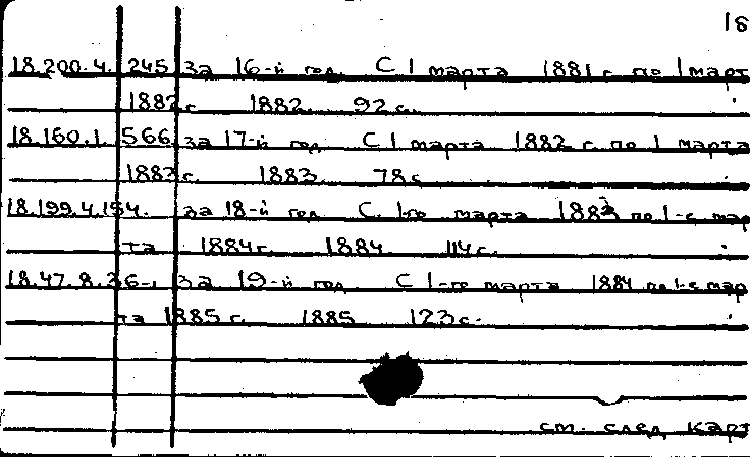 18
18.200.4.245 за 16-й год. С 1 марта 1881 г. по 1 март
1882 г. 1882. 92 с.
18.160.1.566 за 17-й год С 1 марта 1882 г. по 1 марта
1883 г. 1883. 78 с
18.199.4.154. за 18-й год С. 1-го марта 1883 по 1-е мар
та 1884 г. 1884 114 с.
18.47.8.36-1 за 19-й год С 1-го марта 1884 по 1-е мар
та 1885 г. 1885 123 с.
см. след карт